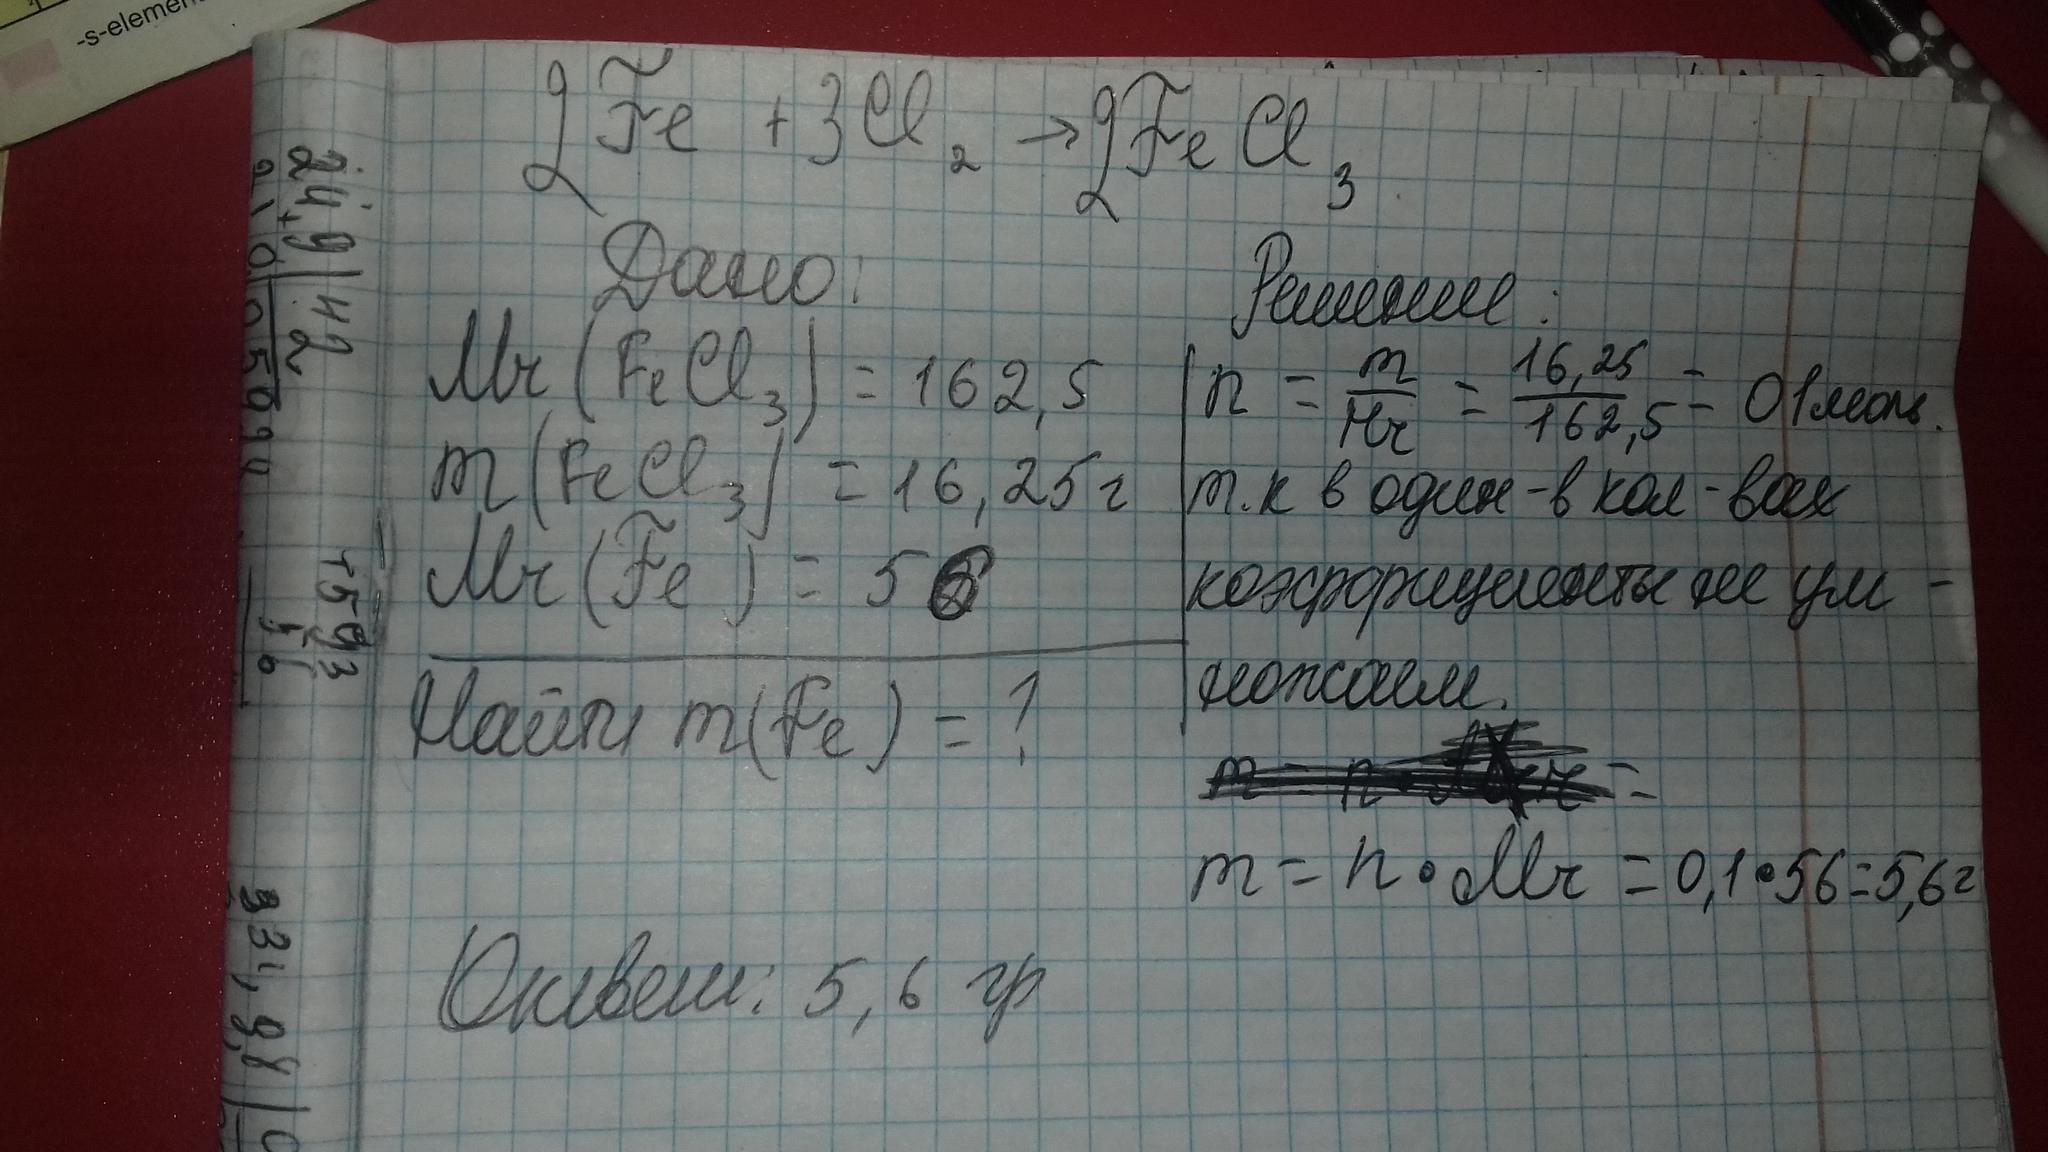 -s-element
2Fe + 3Cl2 → 2FeCl3
Дано:
Mr (FeCl3) = 162,5
m (FeCl3) = 16,25 г
Mr (Fe) = 56
Найти m(Fe) = ?
Решение:
n = m/Mr = 16,25/162,5 = 01 моль.
т.к в один-в кол-вах
коэффициенты не ум-
ножаем.
m = n • Mr = 0,1 • 56 = 5,6 г
Ответ: 5,6 гр